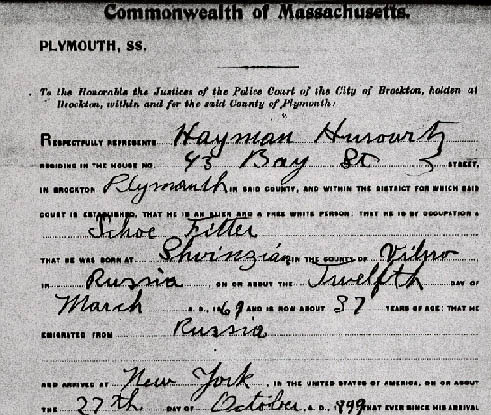 Commonwealth of Massachusetts.
PLYMOUTH, SS.
To the Honorable the Justices of the Police Court of the City of Brockton, holden at
Brockton, within and for the said County of Plymouth:
RESPECTFULLY REPRESENTS Hayman Hurowitz
RESIDING IN THE HOUSE NO. 43 Bay St STREET,
IN BROCKTON Plymouth IN SAID COUNTY, AND WITHIN THE DISTRICT FOR WHICH SAID
COURT IS ESTABLISHED, THAT HE IS AN ALIEN AND A FREE WHITE PERSON: THAT HE IS BY OCCUPATION A
Shoe Fitter
THAT HE WAS BORN AT Shvinzian IN THE COUNTY OF Vilno
IN Russia, ON OR ABOUT THE Twelfth DAY OF
March A. D., 1869 AND IS NOW ABOUT 37 YEARS OF AGE: THAT HE
EMIGRATED FROM Russia
AND ARRIVED AT New York, IN THE UNITED STATES OF AMERICA, ON OR ABOUT
THE 27th DAY OF October, A. D., 1899 THAT EVER SINCE HIS ARRIVAL